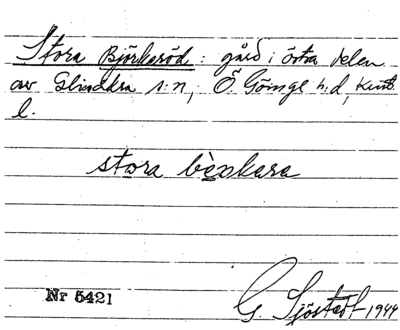 Stora Björkeröd : gård i östra delen
av Glimåkra s:n, Ö. Göinge h:d, Krist.
l.
stora bèrkara
Nr 5421
G. Sjöstedt 1944